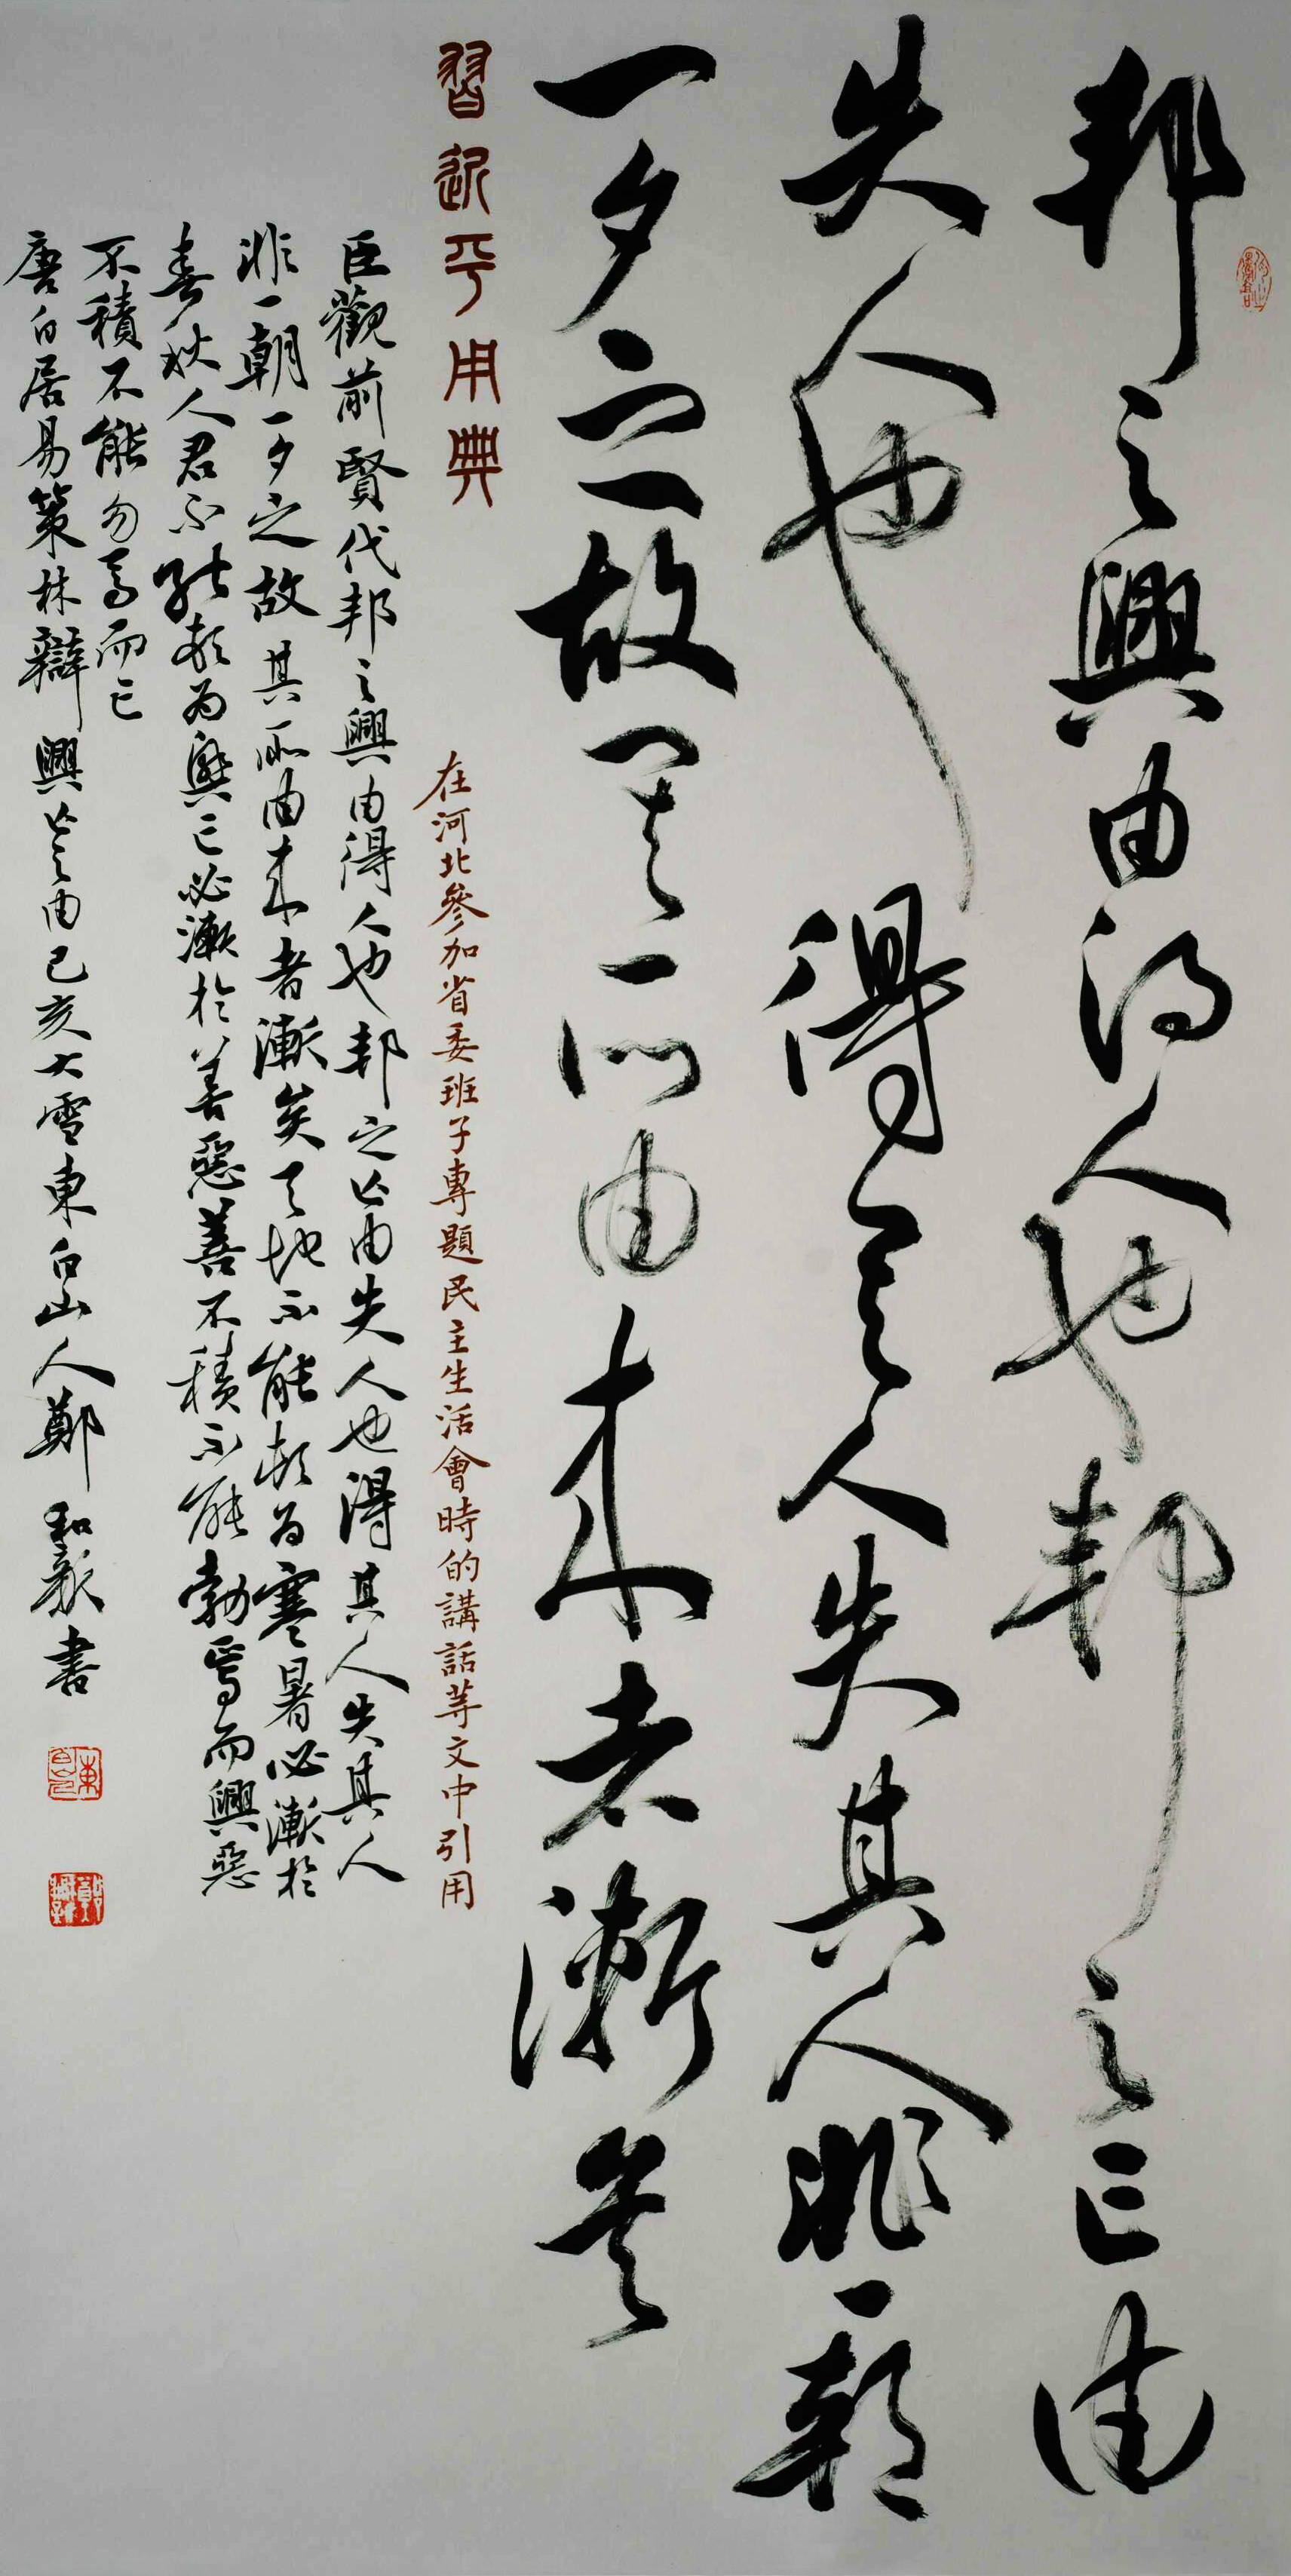 邦之興由得人也邦之亡由
失人也得其人失其人非一朝
一夕之故其所由来者漸矣
習近平用典
在河北參加省委班子專題民主生活會時的講話等文中引用
臣觀前賢代邦之興由得人也邦之亡由失人也得其人失其人
非一朝一夕之故其所由来者漸矣天地不能頓為寒暑必漸於
春秋人君不能頓為興亡必漸於善惡善不積不能勃焉而興惡
不積不能勿焉而亡
唐白居易策林辯興亡之由己亥大雪東白山人鄭和新書